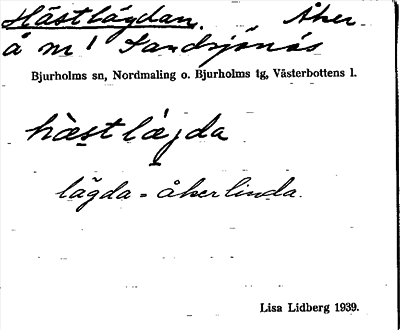 Hästlägdan. Åker
å m 1 Sandsjönäs
Bjurholms sn, Nordmaling o. Bjurholms tg, Västerbottens l.
hæstlægda
lägda = åkerlinda.
Lisa Lidberg 1939.